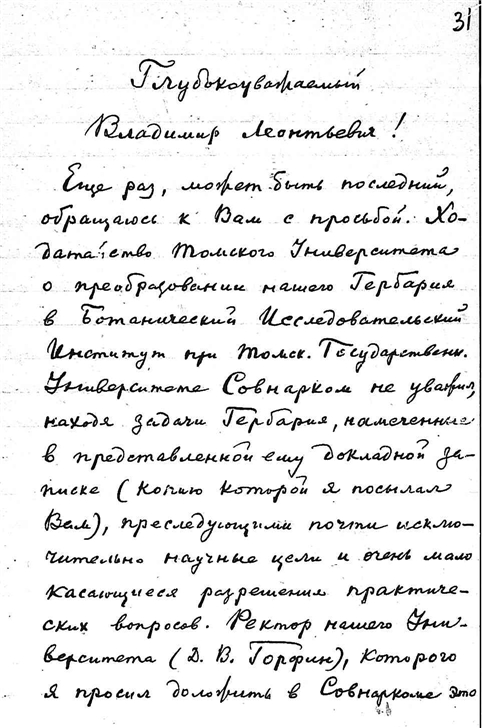 31
Глубокоуважаемый
Владимир Леонтьевич!
Еще раз, может быть последний,
обращаюсь к Вам с просьбой. Хо-
датайство Томского Университета
о преобразовании нашего Гербария
в Ботанический Исследовательский
Институт при Томск. Государственн.
Университете Совнарком не уважил,
находя задачи Гербария, намеченные
в представленной ему докладной за-
писке (копию которой я посылал
Вам), преследующими почти исклю-
чительно научные цели и очень мало
касающиеся разрешения практиче-
ских вопросов. Ректор нашего Уни-
верситета (Д. В. Горфин), которого
я просил доложить в Совнаркоме это